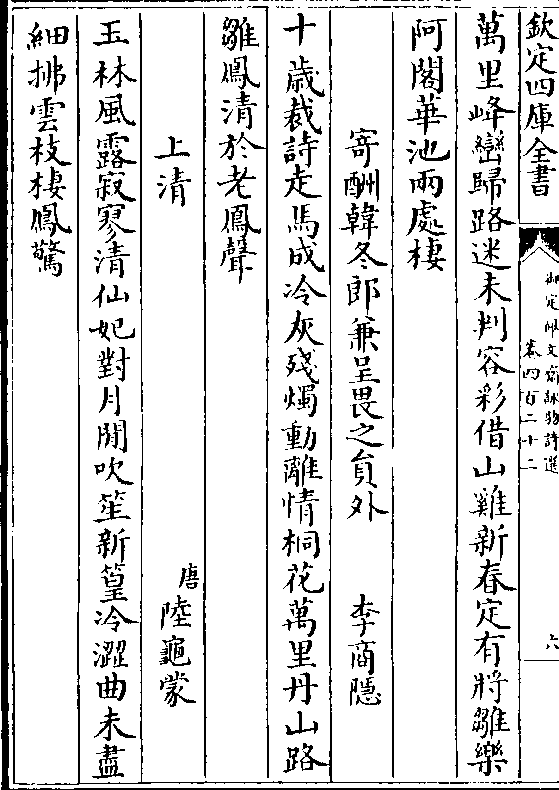 欽定四庫全書
御定佩文齋詠物詩選
卷四百二十二
六
萬里峰巒歸路迷未判容彩借山雞新春定有將雛樂
阿閣華池兩處棲
寄酬韓冬郎兼呈畏之員外 李商隱
十歲裁詩走馬成冷灰殘燭動離情桐花萬里丹山路
雛鳳清於老鳳聲
上清 唐 陸龜蒙
玉林風露寂寥清仙妃對月閒吹笙新篁冷澀曲未盡
細拂雲枝棲鳳驚